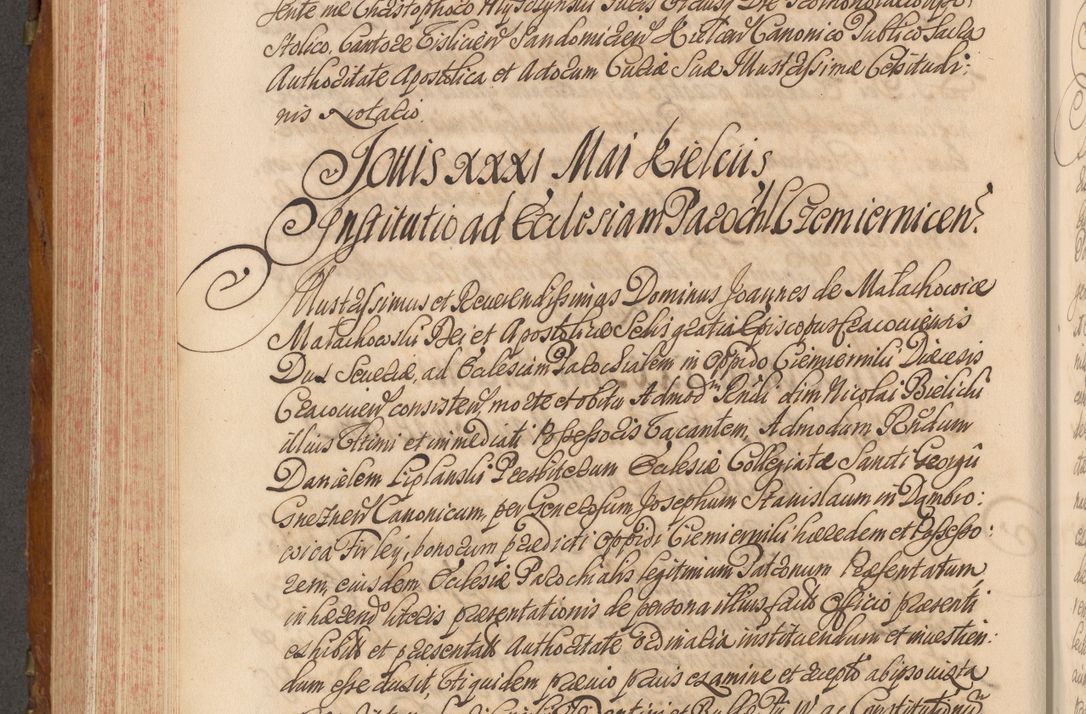 sente me Christophoro
stolico, Cantore Visliciensi Sandomiriensi Kielcen Canonico Publico Sacra
Authoritate Apostolica et Actorum Curiæ Suæ Illustrissimæ Celsitudi:
nis Notario.
Jouis XXXI Mai Kielciis
Institutio ad Ecclesiam Paroch'l Czemiernicen.
Illustrissimus et Reuerendissimus Dominus Joannes de Małachowice
Małachowski Dei et Apostolicæ Sedis gratia Episcopus Cracouiensis
Dux Seueriæ, ad Ecclesiam Parochialem in Oppido Ciemierniki Diæcesis
Cracouien consisten, morte et obitu Admod'm R'ndi olim Nicolai Bielicki
illius Vltimi et immediati Possessoris Vacantem, Admodum R'ndum
Danielem Liplanski Præsbiterum Ecclesiæ Collegiatæ Sancti Georgii
Gneznen Canonicum, per Generosum Josephum Stanislaum in Dąmbro:
wica Firley, bonorum prædicti Oppidi Ciemierniki hæredem et Possesso:
rem, eiusdem Ecclesiæ Parochialis legitimum Patronum Præsentatum
in hærend' literis præsentationis de persona illius factis Officio præsenti
exhibitis et præsentatis Authoritate ordinaria instituendum et inuestien:
dum esse duxit, Vti quidem præuio prauis examine et recepto ab ipso iuxta